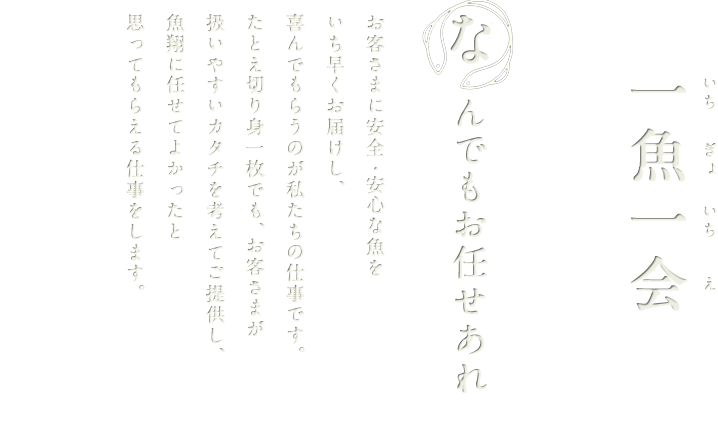 いち ぎょ いち え
一魚一会
なんでもお任せあれ
お客さまに安全・安心な魚を
いち早くお届けし、
喜んでもらうのが私たちの仕事です。
たとえ切り身一枚でも、お客さまが
扱いやすいカタチを考えてご提供し、
魚翔に任せてよかったと
思ってもらえる仕事をします。